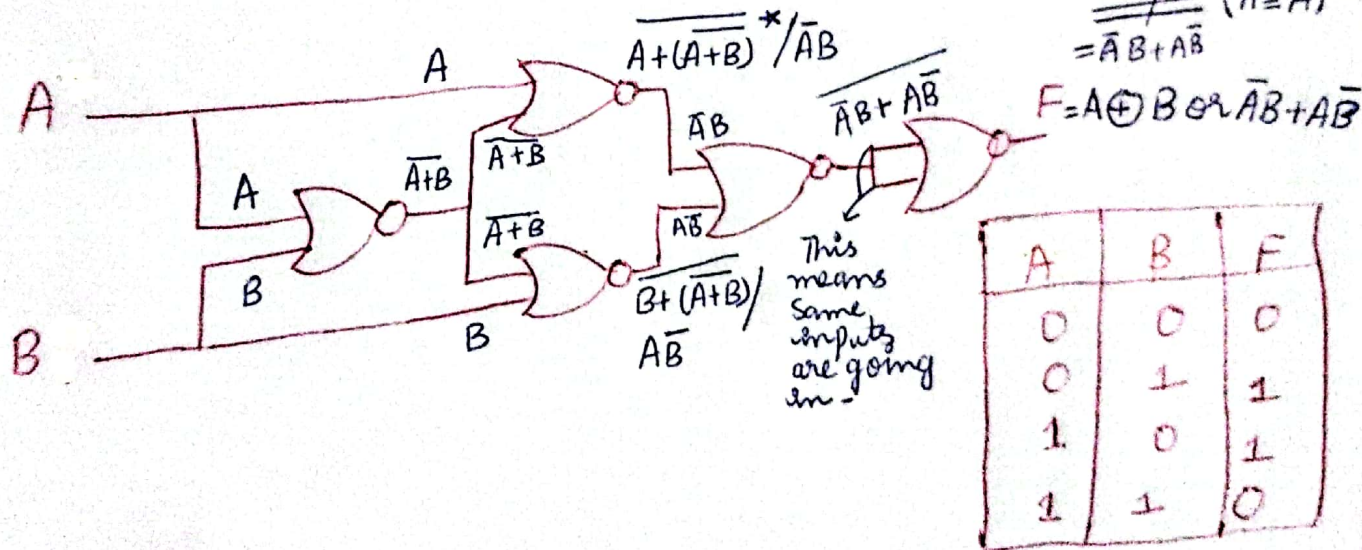 A̅+̅(̅A̅+̅B̅)̅ * / A̅B
= A̅B + AB̅
A
A
A̅B
A̅B̅ ̅+̅ ̅A̅B̅
F = A ⊕ B or A̅B + AB̅
A̅+̅B̅
A
A̅+̅B̅
A̅+̅B̅
AB̅
B
B̅+̅(̅A̅+̅B̅)̅ /
AB̅
B
B
This
means
same
inputs
are going
in -
A B F
0 0 0
0 1 1
1 0 1
1 1 0